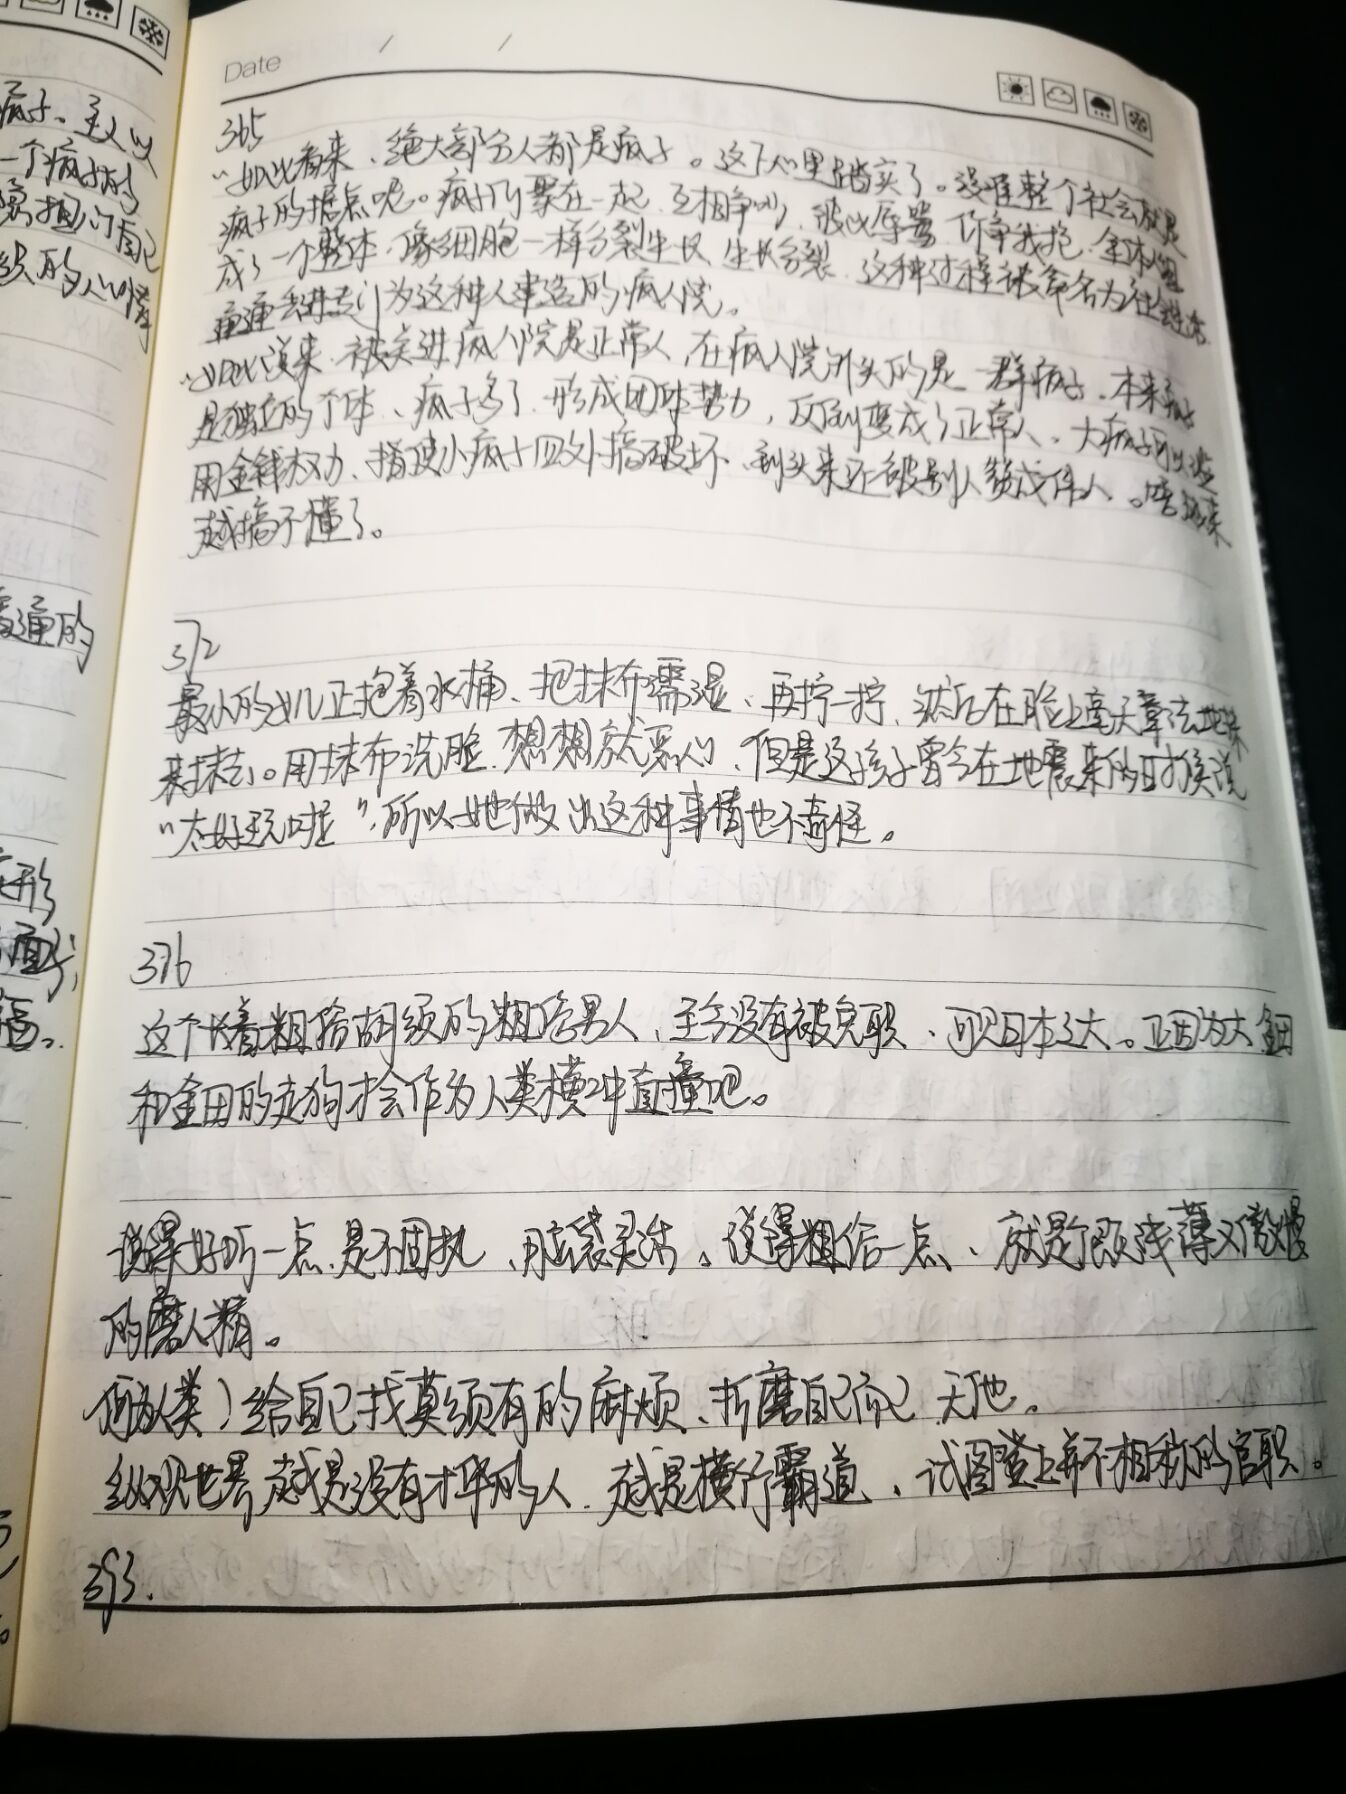 疯子。主人以
一个疯子的
Date / /
365
“如此看来、绝大部分人都是疯子。这下心里踏实了。没准整个社会就是
疯子的据点呢。疯子们聚在一起、互相争吵、彼此辱骂、你争我抢、全体组
成了一个整体、像细胞一样分裂生长、生长分裂、这种过程被命名为社会
通通丢进专门为这种人建造的疯人院。
“如此说来、被关进疯人院是正常人、在疯人院外头的是一群疯子、本来疯子
是独立的个体、疯子多了、形成团体势力，反倒变成了正常人。大疯子可以滥
用金钱权力、指使小疯子四处搞破坏、到头来还被别人赞成伟人。
越搞不懂了。
普通的
372
最小的女儿正抱着水桶、把抹布濡湿、再拧一拧、然后在脸上毫无章法地抹
来抹去。用抹布洗脸、想想就恶心、但是这孩子曾今在地震来的时候说
“太好玩啦”，所以她做出这种事情也不奇怪。
376
这个长着粗俗胡须的粗俗男人、至今没有被免职、可见日本之大。正因为大 金田
和金田的走狗才会作为人类横冲直撞吧。
说得好听一点、是不固执、脑袋灵活。说得粗俗一点、就是个既浅薄又傲慢
的磨人精。
（何为人类）给自己找莫须有的麻烦、折磨自己而已 无他。
纵观世界 越是没有才华的人、越是横行霸道、试图登上并不相称的官职。
393.